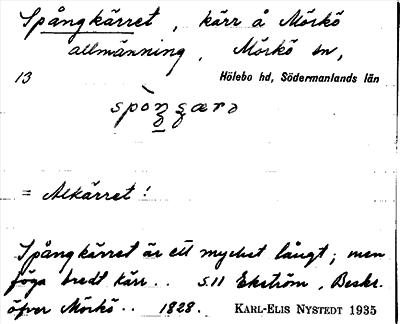 Spångkärret, kärr å Mörkö
allmänning, Mörkö sn,
13 Hölebo hd, Södermanlands län
= Alkärret!
Spångkärret är ett mycket långt, men
föga bredt kärr.. S.11 Ekström, Beskr.
öfver Mörkö.. 1828. KARL-ELIS NYSTEDT 1935